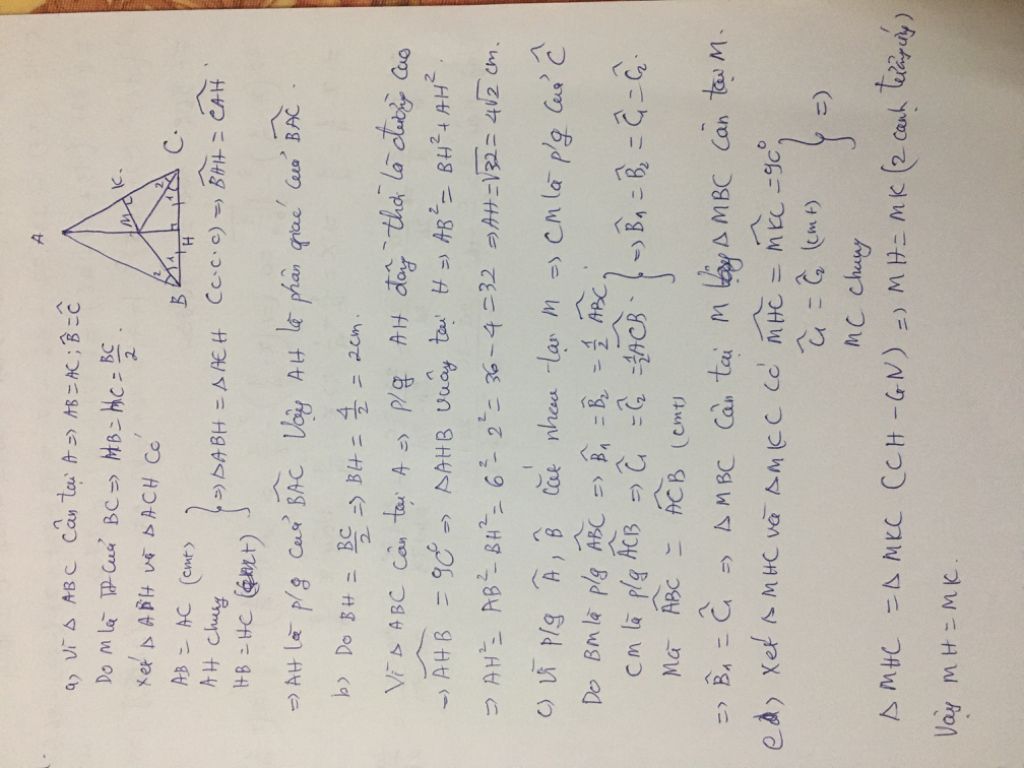 a) Vì Δ ABC cân tại A => AB = AC ; B̂ = Ĉ
Do M là TĐ của BC => MB = MC = BC/2
Xét Δ ABH và Δ ACH có
AB = AC (cmt)
AH chung } => ΔABH = ΔACH (c.c.c) => BAH = CAH.
HB = HC (cmt)
=> AH là p/g của BAC Vậy AH là phân giác của BAC.
b) Do BH = BC/2 => BH = 4/2 = 2cm.
Vì Δ ABC cân tại A => p/g AH đồng thời là đường cao
=> AHB = 90° => ΔAHB vuông tại H => AB² = BH² + AH².
=> AH² = AB² - BH² = 6² - 2² = 36 - 4 = 32 => AH = √32 = 4√2 cm.
c) Vì p/g Â, B̂ cắt nhau tại M => CM là p/g của Ĉ
Do BM là p/g ABC => B̂1 = B̂2 = 1/2 ABC
CM là p/g ACB => Ĉ1 = Ĉ2 = 1/2 ACB. } => B̂1 = B̂2 = Ĉ1 = Ĉ2.
Mà ABC = ACB (cmt)
=> B̂1 = Ĉ1 => Δ MBC cân tại M Vậy Δ MBC cân tại M.
d) Xét Δ MHC và Δ MKC có MHC = MKC = 90°
Ĉ1 = Ĉ2 (cmt) } =>
MC chung
Δ MHC = Δ MKC (CH - GN) => MH = MK (2 cạnh tương ứng)
Vậy MH = MK.
A
M
K.
B
H
C.
1
2
1
2